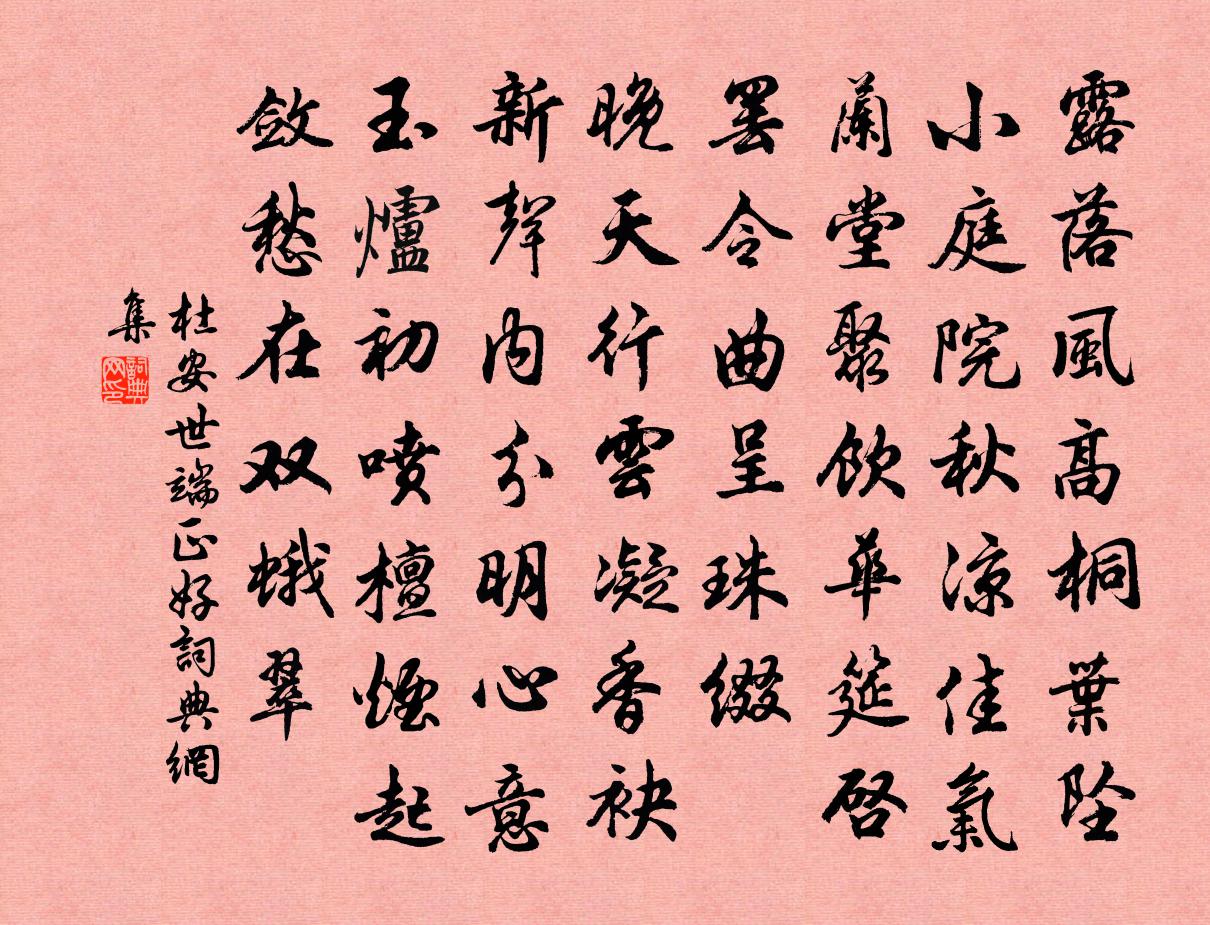 露落風高桐葉墜
小庭院秋涼佳氣
蘭堂聚飲華筵啓
罢令曲呈珠綴
晚天行雲凝香袂
新聲内分明心意
玉爐初喷檀煙起
斂愁在双蛾翠
杜安世端正好詞典網
集
詞典网印